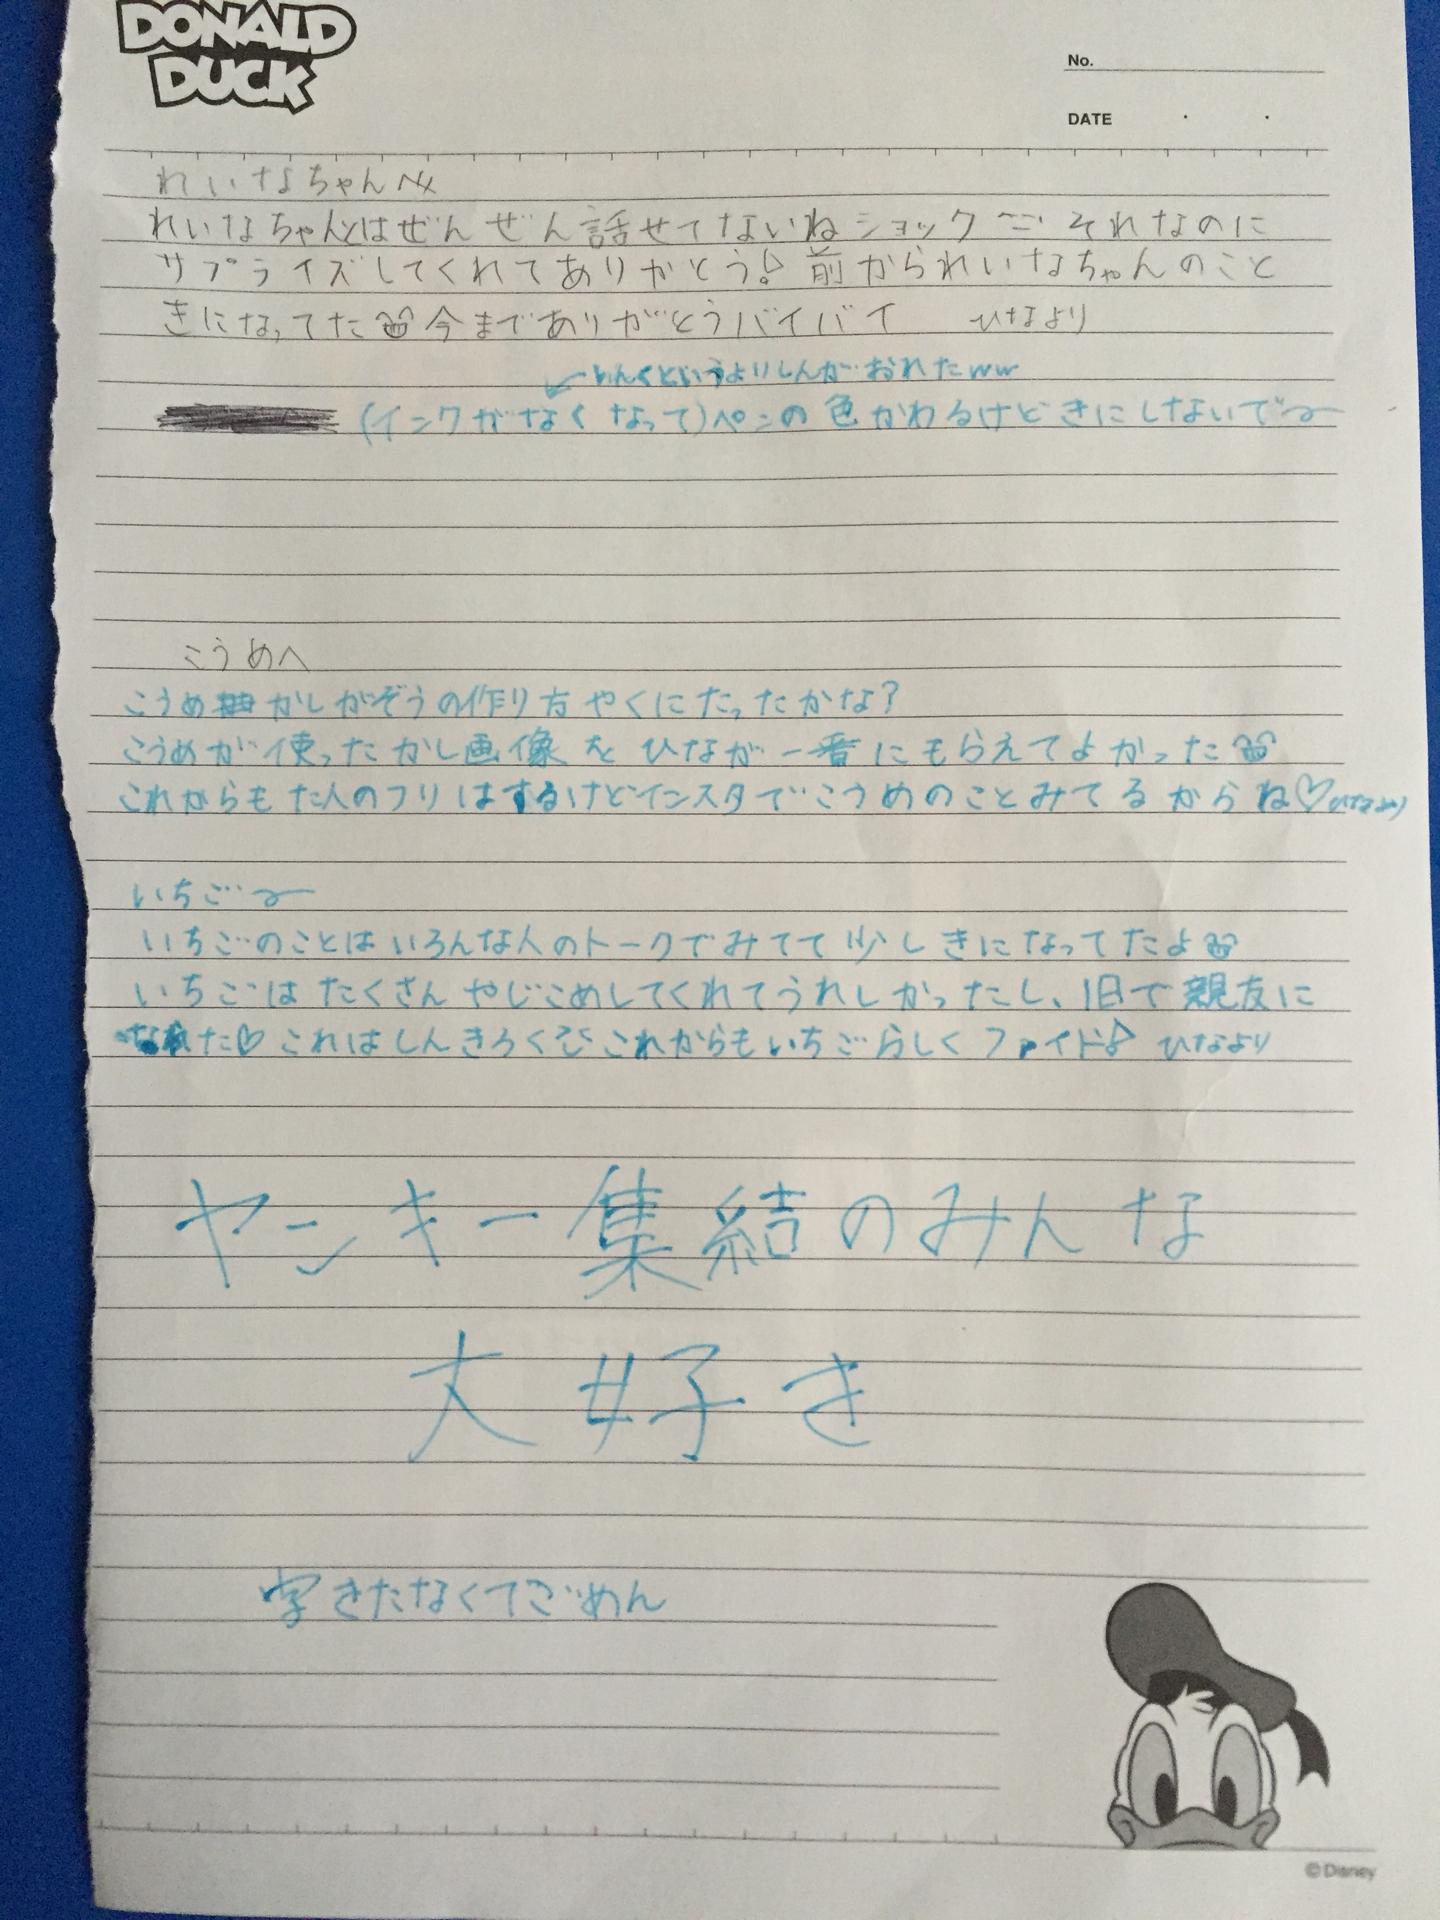 DONALD
DUCK
No.
DATE
れいなちゃんへ
れいなちゃんとはぜんぜん話せてないねショック それなのに
サプライズしてくれてありがとう♪前かられいなちゃんのこと
きになってた 今までありがとうバイバイ ひなより
いんくというよりしんがおれたww
(インクがなくなって)ペンの色かわるけどきにしないで〜
こうめへ
こうめ かしがぞうの作り方やくにたったかな?
こうめが使ったかし画像をひなが一番にもらえてよかった
これからもた人のフリはするけどインスタでこうめのことみてるからね♡ひなより
いちご〜
いちごのことはいろんな人のトークでみてて少しきになってたよ
いちごはたくさんやじこめしてくれてうれしかったし、1日で親友に
なれた♡これはしんきろくぞ これからもいちごらしくファイト♪ ひなより
ヤンキー集結のみんな
大好き
字きたなくてごめん
©Disney